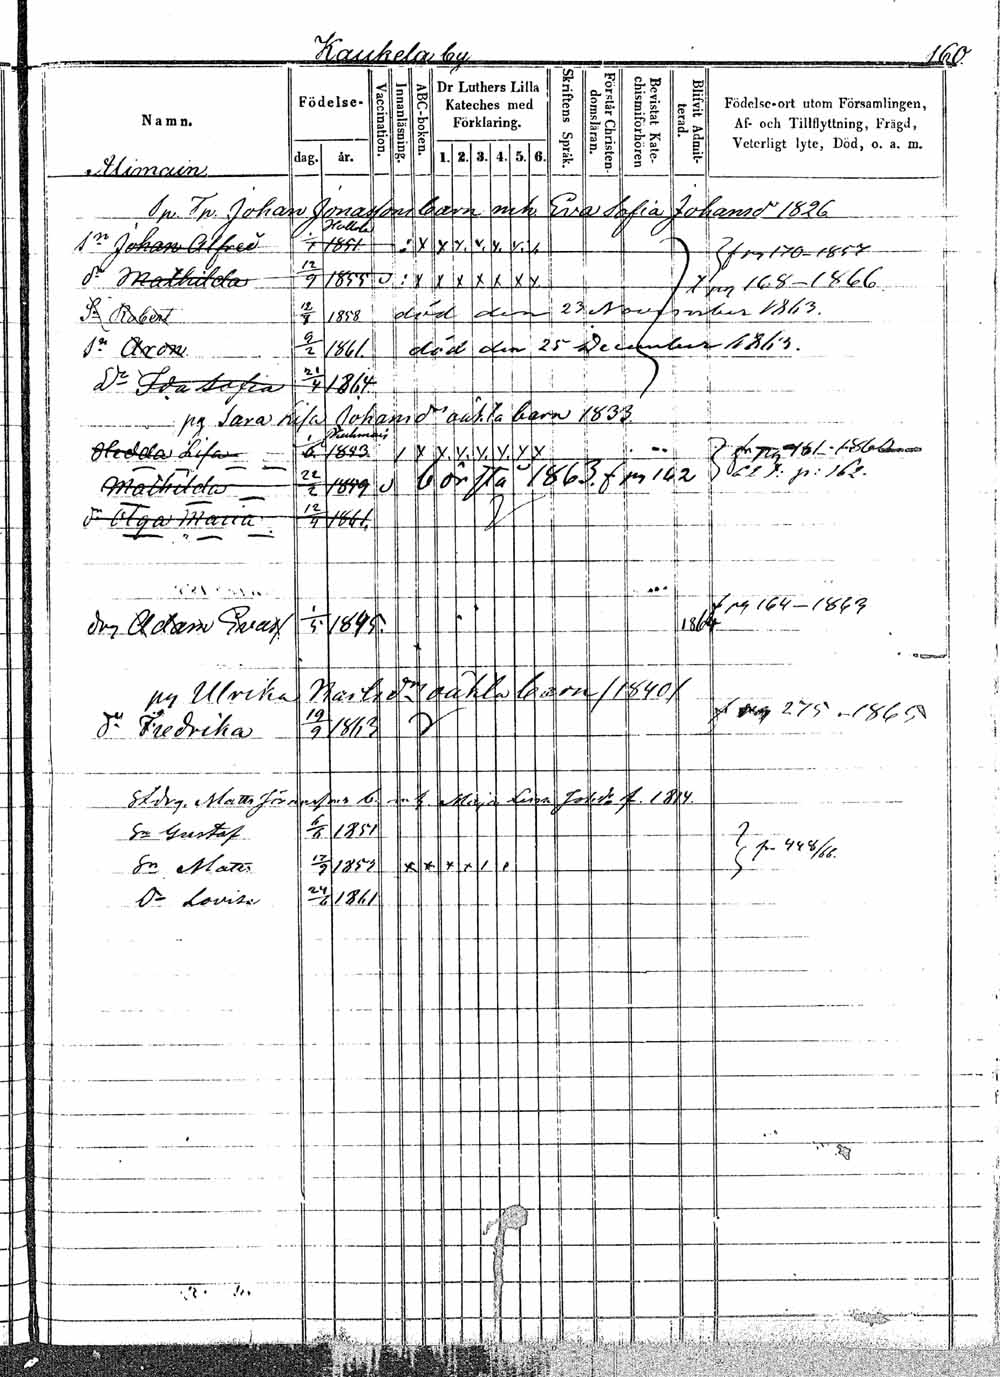 Kaukela by 160.
Namn.
Födelse-
dag. år.
Vaccination.
Innanläsning.
ABC-boken.
Dr Luthers Lilla
Kateches med
Förklaring.
1. 2. 3. 4. 5. 6.
Skriftens Språk.
Förstår Christen-
domsläran.
Bevistat Kate-
chismiförhören
Blifvit Admit-
terad.
Födelse-ort utom Församlingen,
Af- och Tillflyttning, Frägd,
Veterligt lyte, Död, o. a. m.
Alimain
Johan Jönassons barn mh Eva Sofia Johansdr 1826
Sn Johan Alfred 1851 x x x. x. x. x. f pg 170-1857
dr Mathilda 12/9 1855 v : x x x x x x x pg 168-1866
Sn Robert 1858 död den 23 November 1863.
Sn Aron 9/2 1861. död den 25 December 1863.
Dr Ida Sofia 21/4 1864
pg Sara Lisa Johansdrs oäkta barn 1833
Hedda Lisa 1843 / x x x. x. x. x x
Mathilda 22/2 1849 v 1863. f pg 162
dr Olga Maria 12/4 1861.
f pg 164-1863
drg Adam Evasf. 1/5 1845. 1864
pg Ulrika Karlsdrs oäkta barn /1840/
dr Fredrika 19/9 1863 275-1865
Matts Göransons b. m h. Maja Lisa f. 1814.
Sn Gustaf 6/6 1851
Sn Matts 1857 x x x x 1 448/66.
Dr Lovisa 24/6 1861